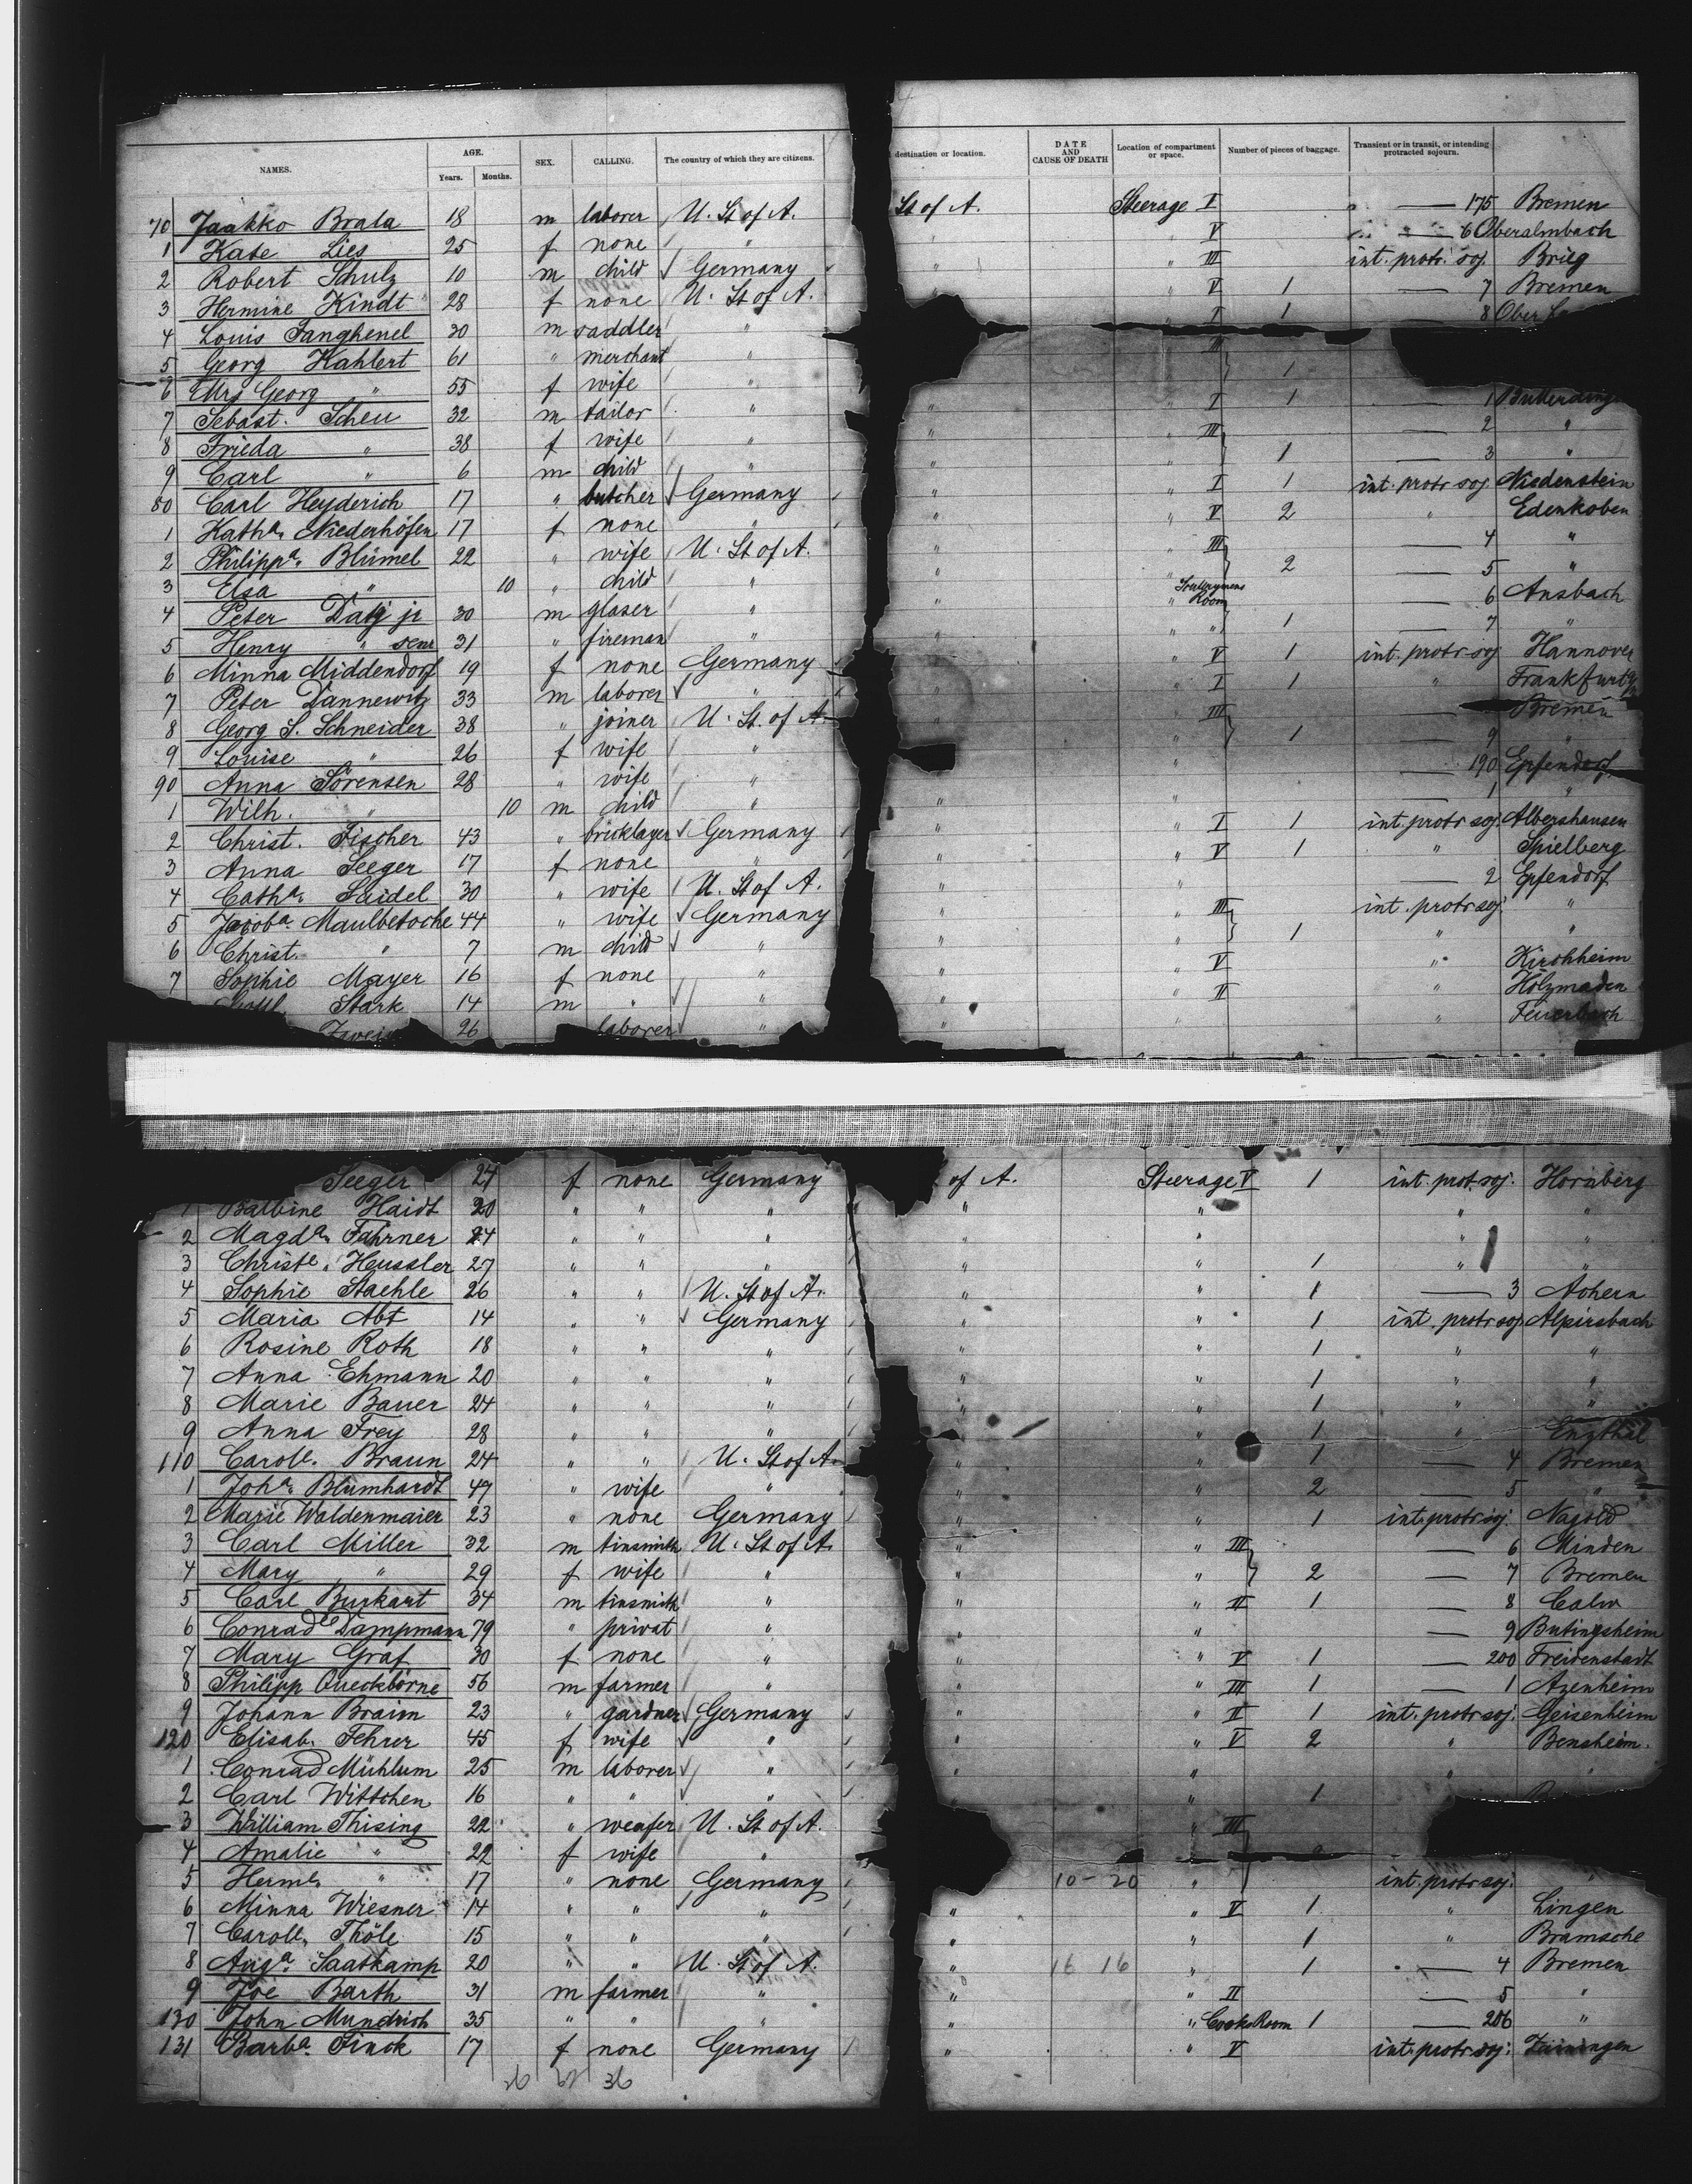 NAMES. AGE. Years. Months. SEX. CALLING. The country of which they are citizens. destination or location. DATE AND CAUSE OF DEATH Location of compartment or space. Number of pieces of baggage. Transient or in transit, or intending protracted sojourn.
70 Jaakko Brala 18 m laborer U. St of A. St of A. Steerage I — 175 Bremen
1 Kate Lies 25 f none " " " V — 6 Oberalmbach
2 Robert Schulz 10 m child Germany " " III int. protr. soj. Brieg
3 Hermine Kindt 28 f none U. St of A. " " V 1 — 7 Bremen
4 Louis Fanghenel 30 m saddler " " I 1 — 8 Ober
5 Georg Kahlert 61 " merchant " III
6 Mrs Georg " 55 f wife " 1
7 Sebast. Scheu 32 m tailor " " " I 1 — 1
8 Frieda " 38 f wife " " " III — 2 "
9 Carl " 6 m child " " " 1 — 3 "
80 Carl Heyderich 17 " butcher Germany " " I 1 int. protr soj. Niedenstein
1 Katha. Niederhöfen 17 f none " " " V 2 " Edenkoben
2 Philippa. Blümel 22 " wife U. St of A. " " III — 4 "
3 Elsa " 10 " child " " 2 — 5 "
4 Peter Datz jr 30 m glaser " " " Room — 6 Ansbach
5 Henry " senr 31 " fireman " " " 1 — 7 "
6 Minna Middendorf 19 f none Germany " V 1 int. protr soj Hannover
7 Peter Dannewitz 33 m laborer " " I 1 " Frankfurt
8 Georg S. Schneider 38 " joiner U. St. of A. " " III Bremen
9 Louise " 26 f wife " " 1 — 9 "
90 Anna Sörensen 28 " wife " " — 190 Epfendorf
1 Wilh. " 10 m child " " " — 1 "
2 Christ. Fischer 43 " bricklayer Germany " " I 1 int. protr soj. Albershausen
3 Anna Seeger 17 f none " " " V 1 " Spielberg
4 Catha. Seidel 30 " wife U. St of A. " " — 2 Epfendorf
5 Jacoba. Maulbetoche 44 " wife Germany " " III int. protr soj. "
6 Christ. " 7 m child " " " 1 " "
7 Sophie Mayer 16 f none " " " V " Kirchheim
Stark 14 m " " " " II " Holzmaden
26 laborer " " " Feuerbach
Seeger 24 f none Germany of A. Steerage V 1 int. prot. soj. Hornberg
1 Balbine Haidt 20 " " " " " " "
2 Magda. Fahrner 24 " " " " " " "
3 Christe. Heussler 27 " " " " " 1 " "
4 Sophie Staehle 26 " " U. St of A. " " 1 — 3 Achern
5 Maria Abt 14 " " Germany " " 1 int. protr soj Alpirsbach
6 Rosine Roth 18 " " " " " 1 " "
7 Anna Ehmann 20 " " " " " 1 " "
8 Marie Bauer 24 " " " " " 1 " "
9 Anna Frey 28 " " " " " 1 " Enzthal
110 Carole. Braun 24 " " U. St of A. " " 1 — 4 Bremen
1 Joha. Blumhardt 47 " wife " " " 2 — 5 "
2 Marie Waldenmaier 23 " none Germany " " 1 int. protr soj. Nagold
3 Carl Miller 32 m tinsmith U. St of A. " " III — 6 Minden
4 Mary " 29 f wife " " " 2 — 7 Bremen
5 Carl Burkart 34 m tinsmith " " " II 1 — 8 Calw
6 Conrad Dampmann 79 " privat " " " — 9 Butingsheim
7 Mary Graf 30 f none " " " V 1 — 200 Freidenstadt
8 Philipp Queckborne 56 m farmer " " " III 1 — 1 Azenheim
9 Johann Braim 23 " gardner Germany " " II 1 int. protr soj. Geisenheim
120 Elisab. Fehrer 45 f wife " " " V 2 " Bensheim.
1 Conrad Mühlum 25 m laborer " " " "
2 Carl Wittchen 16 " " " " " 1
3 William Thising 22 " weafer U. St of A. " III
4 Amalie " 22 f wife "
5 Herme. " 17 " none Germany " 10-20 " int. protr soj.
6 Minna Wiesner 14 " " " " " V 1 " Lingen
7 Carole. Thöle 15 " " " " " 1 " Bramsche
8 Auga. Saatkamp 20 " " U. St of A. " 16 16 " 1 — 4 Bremen
9 Joe Barth 31 m farmer " " " II — 5 "
130 John Mundrich 35 " " " " " Cooks Room 1 — 206 "
131 Barba. Finck 17 f none Germany " " V int. protr soj.
36